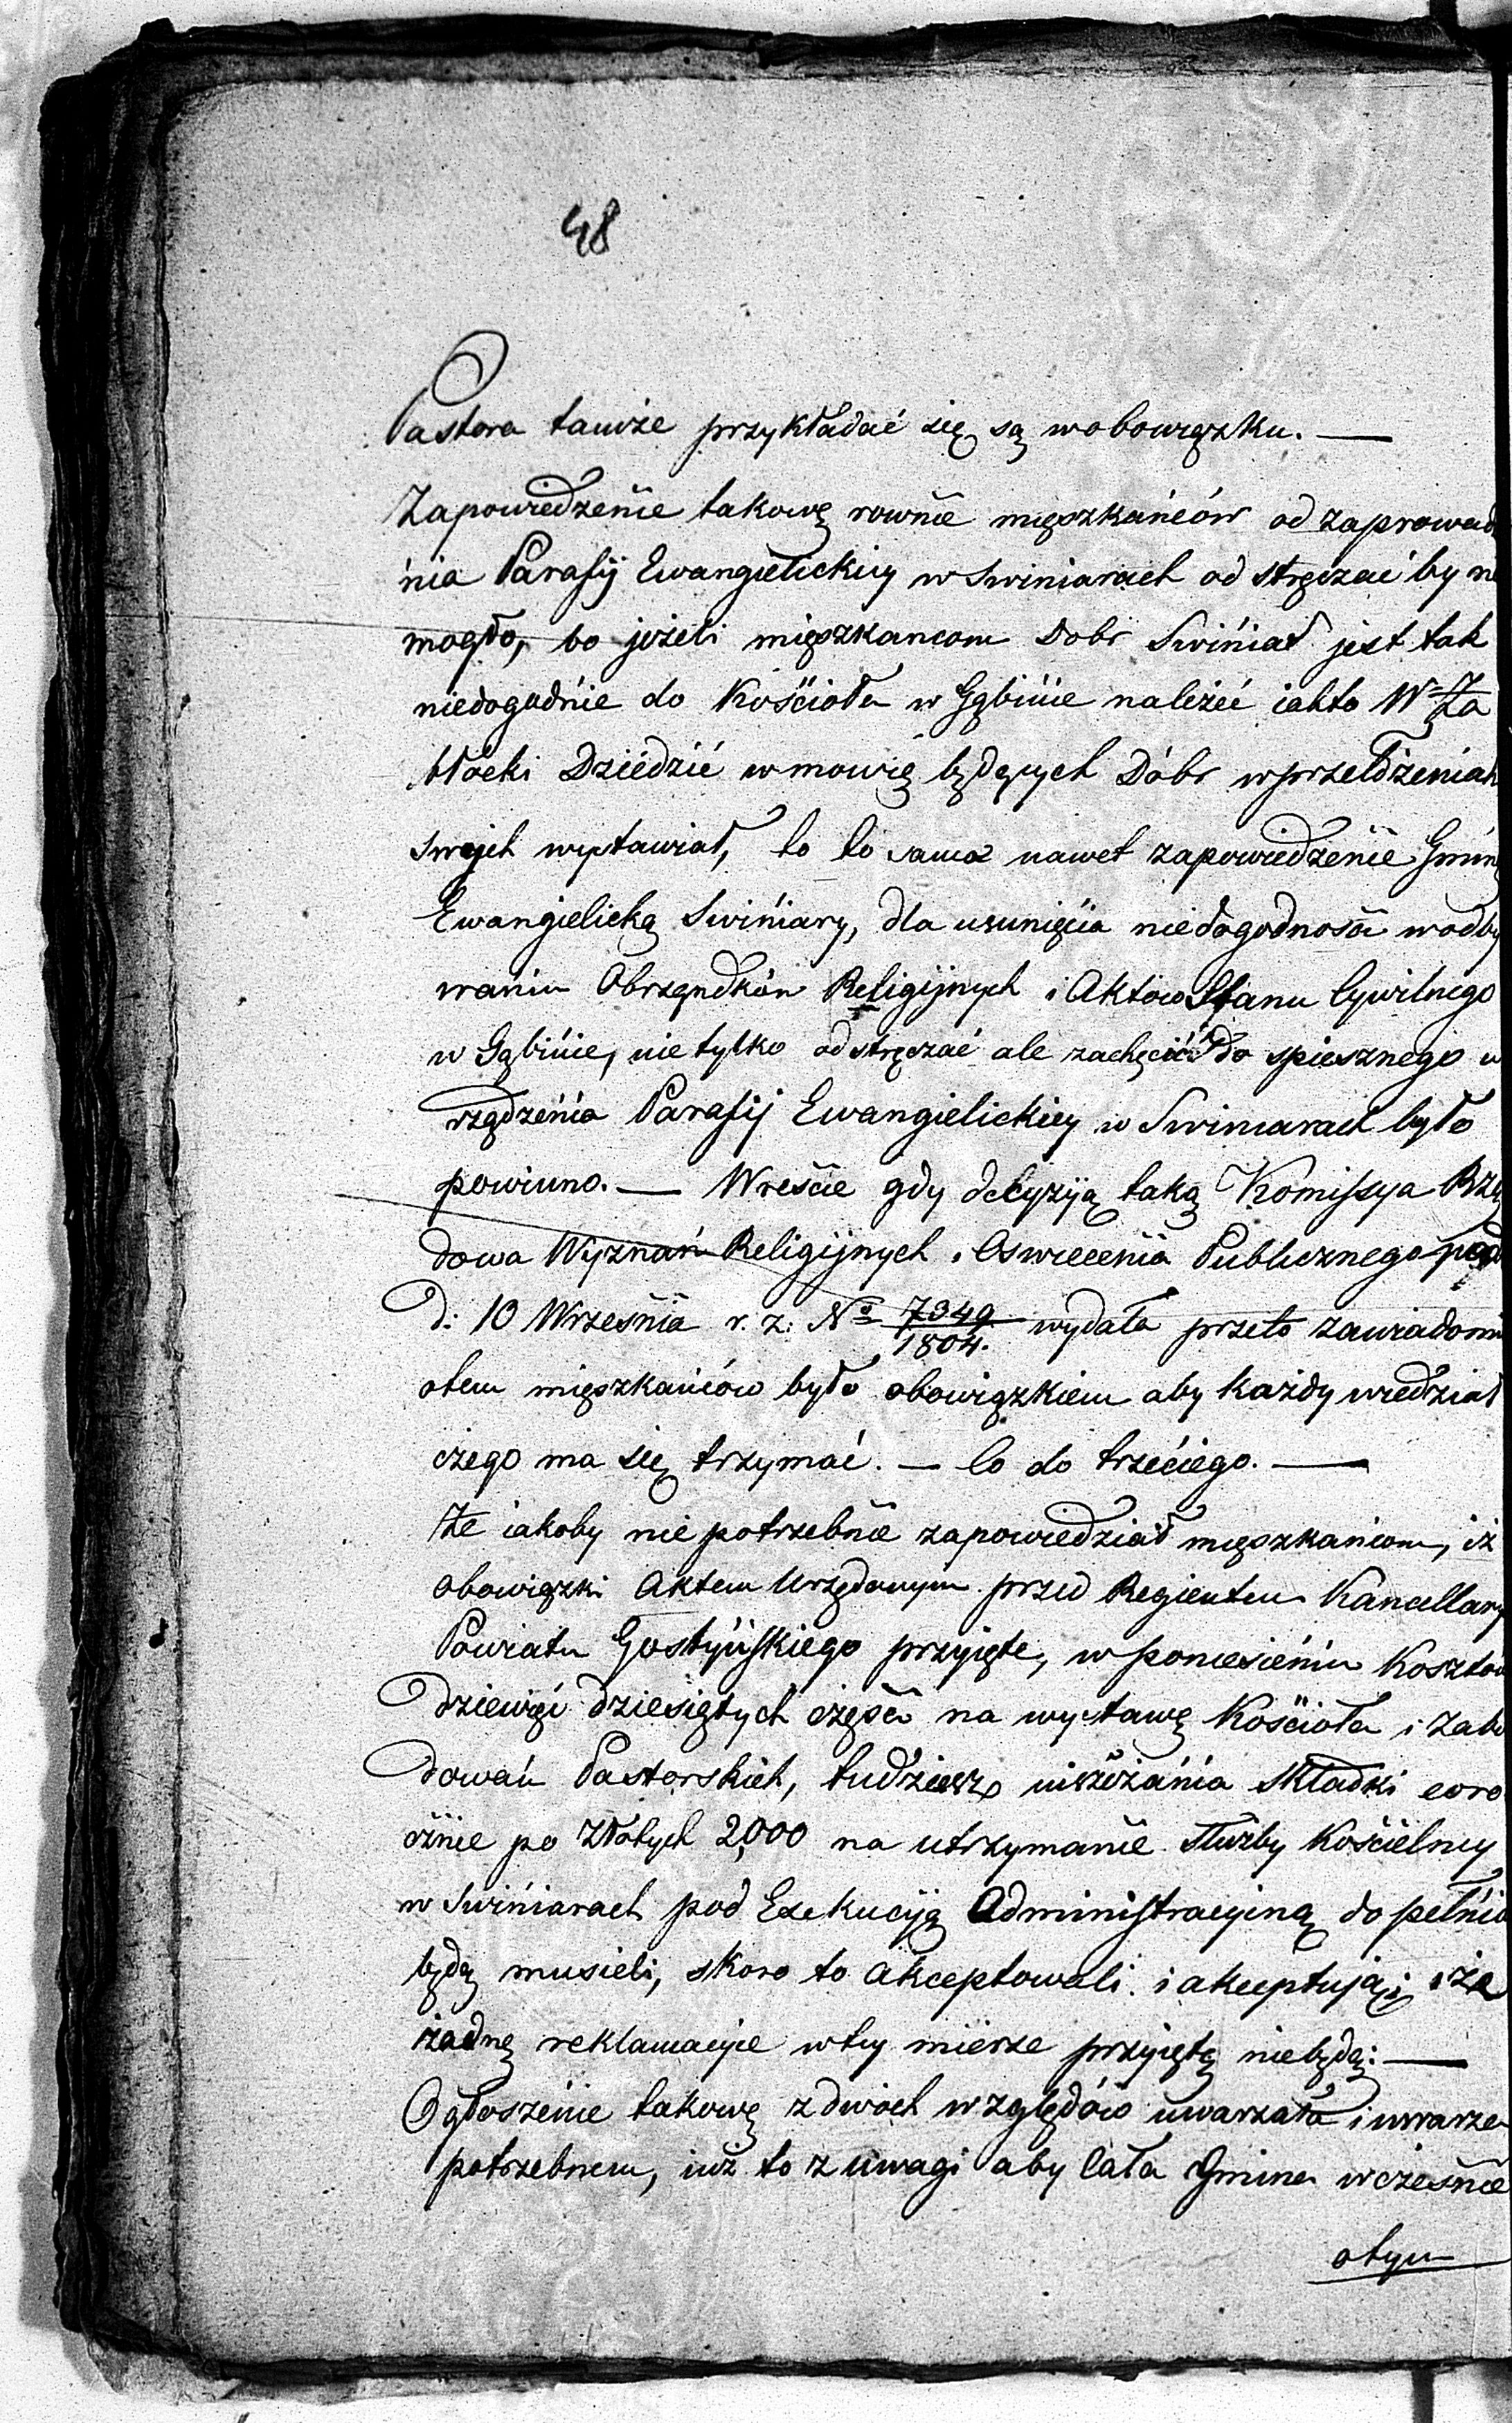 48
Pastora tamże przykładać się są wobowiązku. —
Zapowiedzenie takowę rownie mięszkańców od zaprowad
nia Parafij Ewangielickiey w Swiniarach od stręczać by
mogło, bo jeżeli mięszkancom Dobr Swiniar jest tak
niedogodnie do Kościoła w Gąbinie należeć iakto W
błocki Dziedzić wmowię będących Dóbr wprzełdżeniah
swojch wystawiał, to to samo nawet zapowiedzenie Gmin
Ewangielicką Swiniary, dla usunięcia niedogodności wodby
waniu Obrzandków Religijnych i Aktow Stanu Cywilnego
w Gąbinie, nie tylko odstręczać ale zachęcić do spiesznego u
rządzenia Parafij Ewangielickiey w Swiniarach było
powinno. — Wreście gdy decyzyją taką Komissya Rzą
dowa Wyznań Religijnych i Oswiecenia Publicznego pod
D: 10 Września r. z. No 7349/1804. wydała przeto zawiadom
otem mięszkańców było obowiązkiem aby każdy wiedział
czego ma się trzymać. — Co do trzeciego. —
Że iakoby nie potrzebnie zapowiedział mięszkańcom, iż
obowiązki Aktem Urzędowym przed Regientem Kancellary
Powiatu Gostyńskiego przyięte, w poniesieniu Kosztow
dziewięć dziesiątych części na wystawę Kościoła i Zabu
dowań Pastorskich, tudziesz uiszczania Składki coro
cznie po Złotych 2,000 na utrzymanie Służby Kościelney
w Swiniarach pod Exekucyją Administracyiną do pełnić
będą musieli, skoro to akceptowali i akceptują; i że
żadnę reklamacyie wtey mierze przyiętę niebędą: —
Ogłoszenie takowę z dwóch względów uwarzała i uwarza
potrzebnem, iuż to z uwagi aby Cała Gmina wcześnie
otym